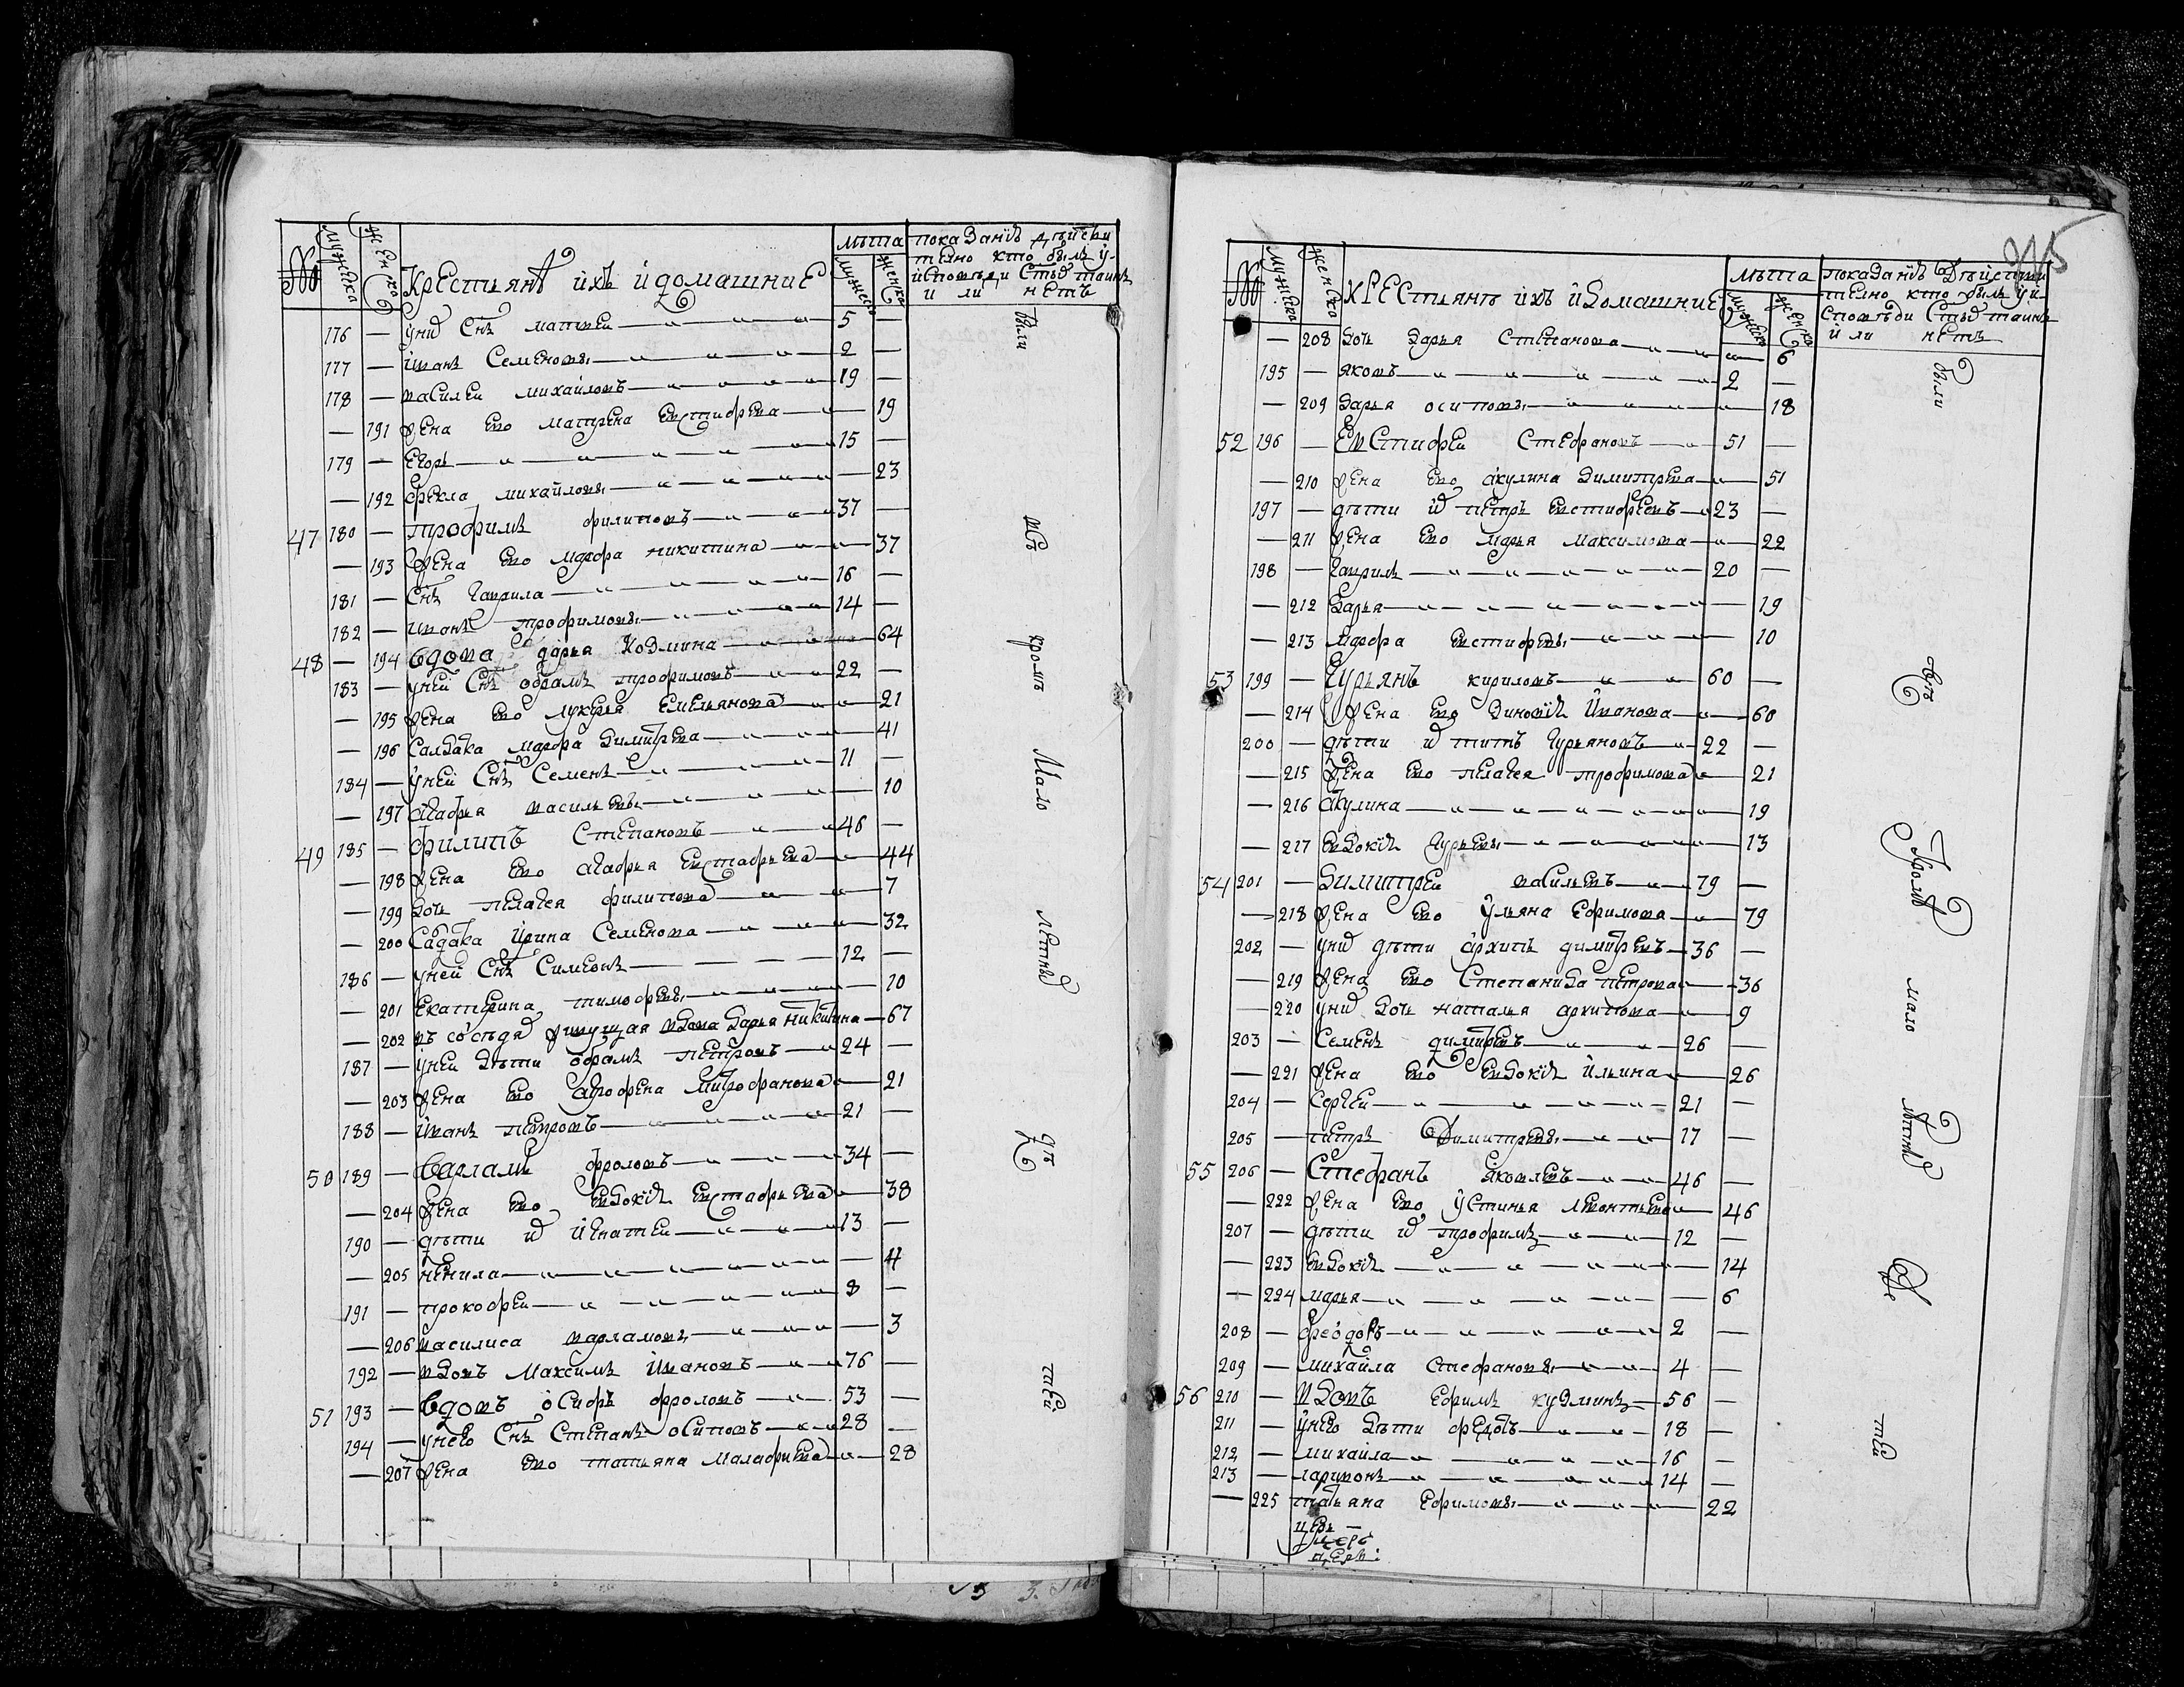 № мужеска женско Крестьянъ ихъ и домашние
лѣта мужеска женска
показание действи
телно кто былъ у
исповеди Стыд таинъ
и ли нетъ
176 — у нид Снъ матвеи — 5 —
177 — иванъ Семеновы — 2 —
178 — василеи михаиловъ — 19 —
— 191 жена ево матрена Евстифева — 19
179 — Егоръ — 15 —
— 192 фекла михаиловы — 23
47 180 — трофимъ филиповъ — 37 —
— 193 жена ево марфа никитина — 37
181 — Снъ гаврила — 16 —
182 — иванъ трофимовы — 14 —
48 — 194 вдова дарья Козмина — 64
183 — у ней Снъ абрамъ трофимовъ — 22 —
— 195 жена ево лукерья Емельянова — 21
— 196 Салдака марфа димитрева — 41
184 — у ней Снъ Семенъ — 11 —
— 197 агафья васильевы — 10
49 185 — филипъ Степановъ — 46 —
— 198 жена ево агафья Евстафьева — 44
— 199 дочь пелагея филипова — 7
— 200 Садака ирина Семенова — 32
186 — у ней Снъ Симеонъ — 12 —
— 201 Екатерина тимофеевы — 10
— 202 въ соседд живущая вдова дарья никитина — 67
187 — у ней дѣти абрамъ петровъ — 24 —
— 203 жена ево аграфена митрофанова — 21
188 — иванъ петровъ — 21 —
50 189 — варламъ фроловъ — 34 —
— 204 жена ево евдокиа Евстафьева — 38
190 — дѣти ид игнатеи — 13 —
— 205 ненила — 11
191 — прокофеи — 8 —
— 206 василиса варламовы — 3
192 — вдовъ Максимъ Ивановъ — 76 —
51 193 — вдовъ осифъ фроловъ — 53 —
194 — у него Снъ Степанъ осиповъ — 28 —
— 207 жена ево татьяна малафиева — 28
были
всѣ
кромѣ
мало
летнид
дѣ
теи
215
№ мужеска женско Крестьянъ ихъ и домашние
лѣта мужеска женска
показание действи
телно кто былъ у и
споведи Стыд таинъ
и ли нетъ
— 208 дочь дарья Степанова — 6
195 — яковъ — 2 —
— 209 дарья осиповы — 18
52 196 — Евстифеи Стефановъ — 51 —
— 210 жена ево акулина димитрева — 51
197 — дѣти ид петръ евстифеевъ — 23 —
— 211 жена ево марья максимова — 22
198 — гаврилъ — 20 —
— 212 дарья — 19
— 213 марфа евстифевы — 10
53 199 — Гурьянъ кириловъ — 60 —
— 214 жена ево зиновиа иванова — 60
200 — дѣти ид титъ гурьяновъ — 22 —
— 215 жена ево пелагея трофимова — 21
— 216 акулина — 19
— 217 евдокиа гурьевы — 13
54 201 — димитреи васильевъ — 79 —
— 218 жена ево ульяна Ефимова — 79
202 — у нид дѣти архипъ димитревъ — 36 —
— 219 жена ево Степанида петрова — 36
— 220 у нид дочь наталья архипова — 9
203 — Семенъ димитревъ — 26 —
— 221 жена ево евдокиа ильина — 26
204 — Сергеи — 21 —
205 — петръ димитревы — 17 —
55 206 — Стефанъ яковлевъ — 46 —
— 222 жена ево устинья леонтьева — 46
207 — дѣти ид трофимъ — 12 —
— 223 евдокиа — 14
— 224 марья — 6
208 — феодоръ — 2 —
209 — михаила Стефановы — 4 —
56 210 — вдовъ Ефимъ кузминъ — 56 —
211 — у него дѣти федотъ — 18 —
212 — михаила — 16 —
213 — ларионъ — 14 —
— 225 татьяна Ефимовы — 22
были
всѣ
кромѣ
мало
летнид
дѣ
теи